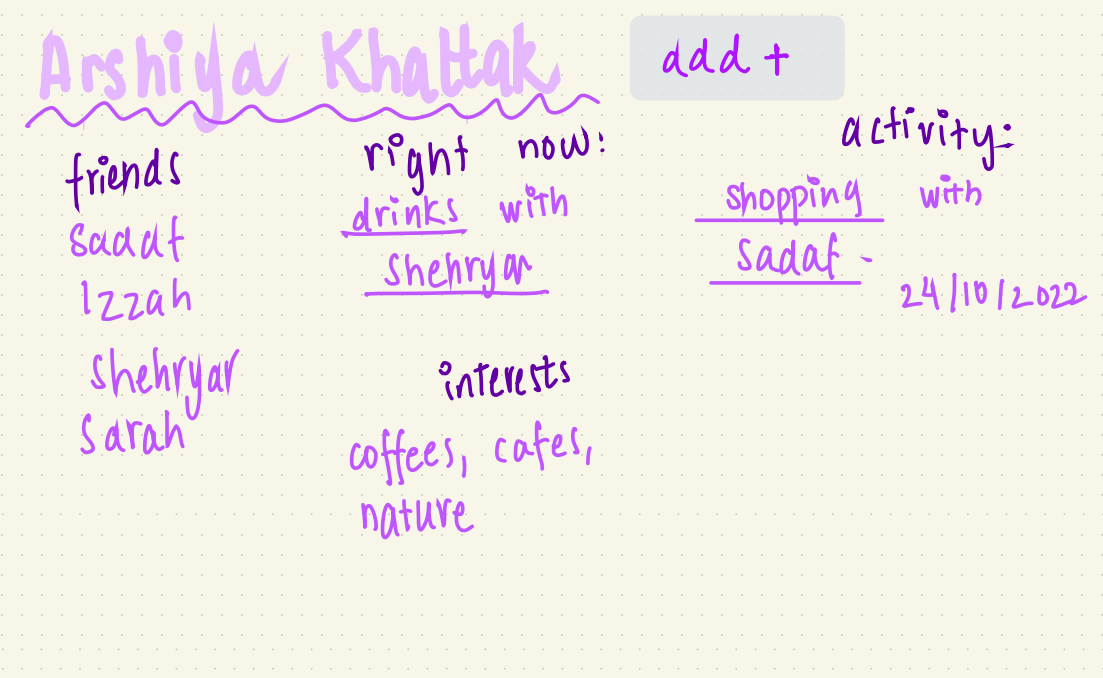 Arshiya Khattak
add +
friends
Sadaf
Izzah
Shehryar
Sarah
right now:
drinks with
Shehryar
interests
coffees, cafes,
nature
activity:
shopping with
Sadaf -
24/10/2022